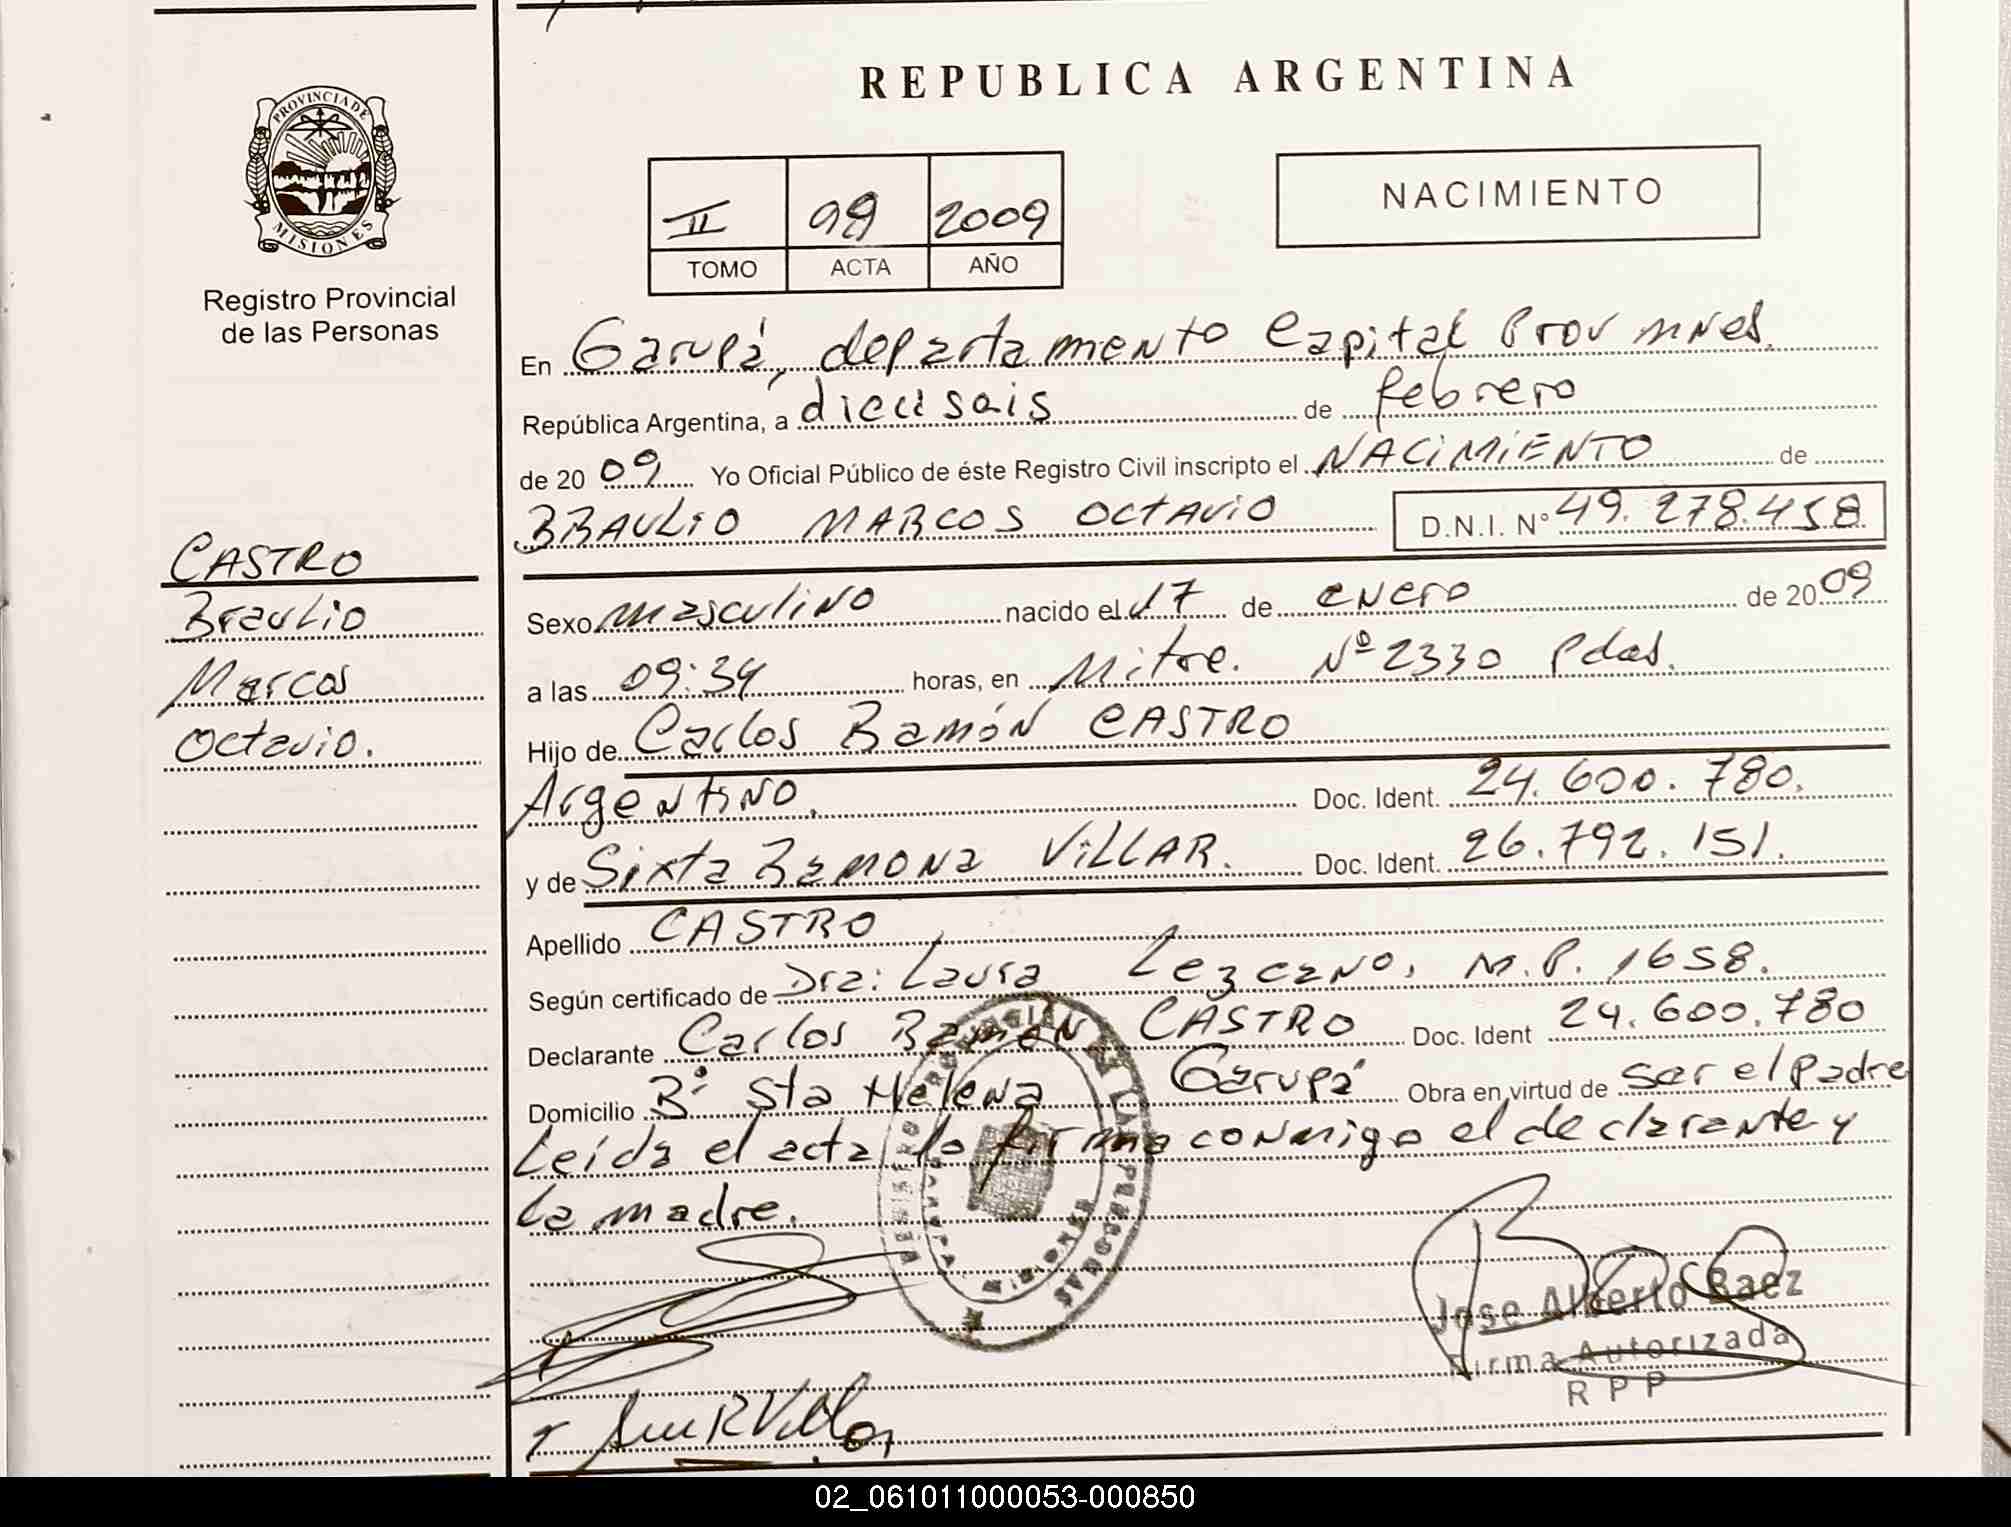 PROVINCIA DE
MISIONES
Registro Provincial
de las Personas
CASTRO
Braulio
Marcos
Octavio.
REPUBLICA ARGENTINA
II 99 2009
TOMO ACTA AÑO
NACIMIENTO
En Garupá, departamento Capital Prov Mnes.
República Argentina, a diecisais de febrero
de 2009 Yo Oficial Público de éste Registro Civil inscripto el NACIMIENTO de
BRAULIO MARCOS OCTAVIO D.N.I. N° 49.278.458
Sexo masculino nacido el 17 de enero de 2009
a las 09:34 horas, en Mitre. Nº 2330 Pdas.
Hijo de Carlos Ramón CASTRO
Argentino. Doc. Ident. 24.600.780.
y de Sixta Ramona VILLAR. Doc. Ident. 26.792.151.
Apellido CASTRO
Según certificado de Dra: Laura Lezcano. M.P. 1658.
Declarante Carlos Ramón CASTRO Doc. Ident 24.600.780
Domicilio Bº Sta Helena Garupá Obra en virtud de ser el padre
Leída el acta la firma conmigo el declarante y
la madre.
REGISTRO PROVINCIAL DE LAS PERSONAS
GARUPA MISIONES
Jose Alberto Baez
Firma Autorizada
R P P
02_061011000053-000850